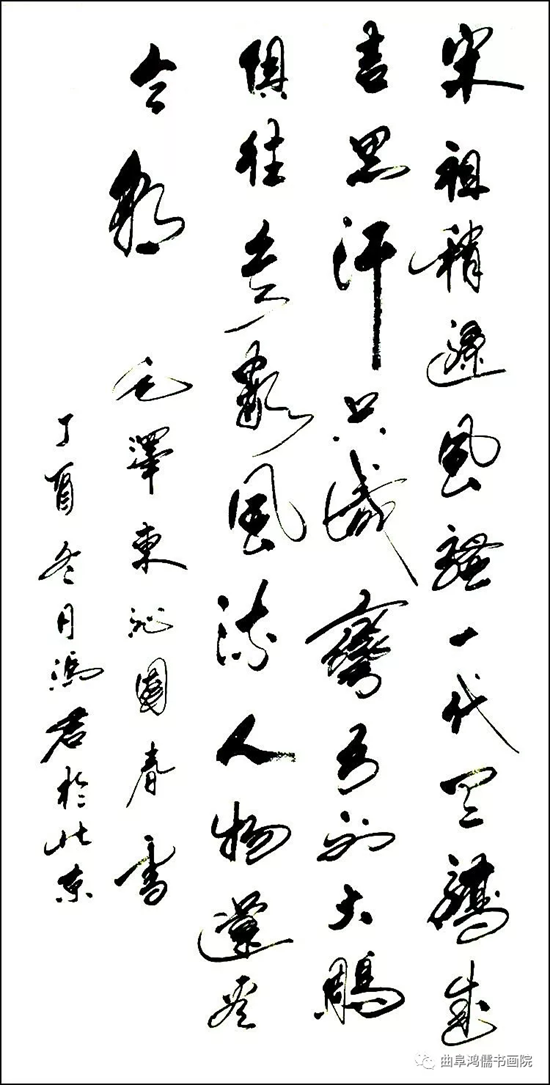 宋祖稍遜風騷一代天驕成
吉思汗只識彎弓射大鵰
俱往矣數風流人物還看
今朝 毛澤東沁園春雪
丁酉冬月馮君於北京
曲阜鸿儒书画院